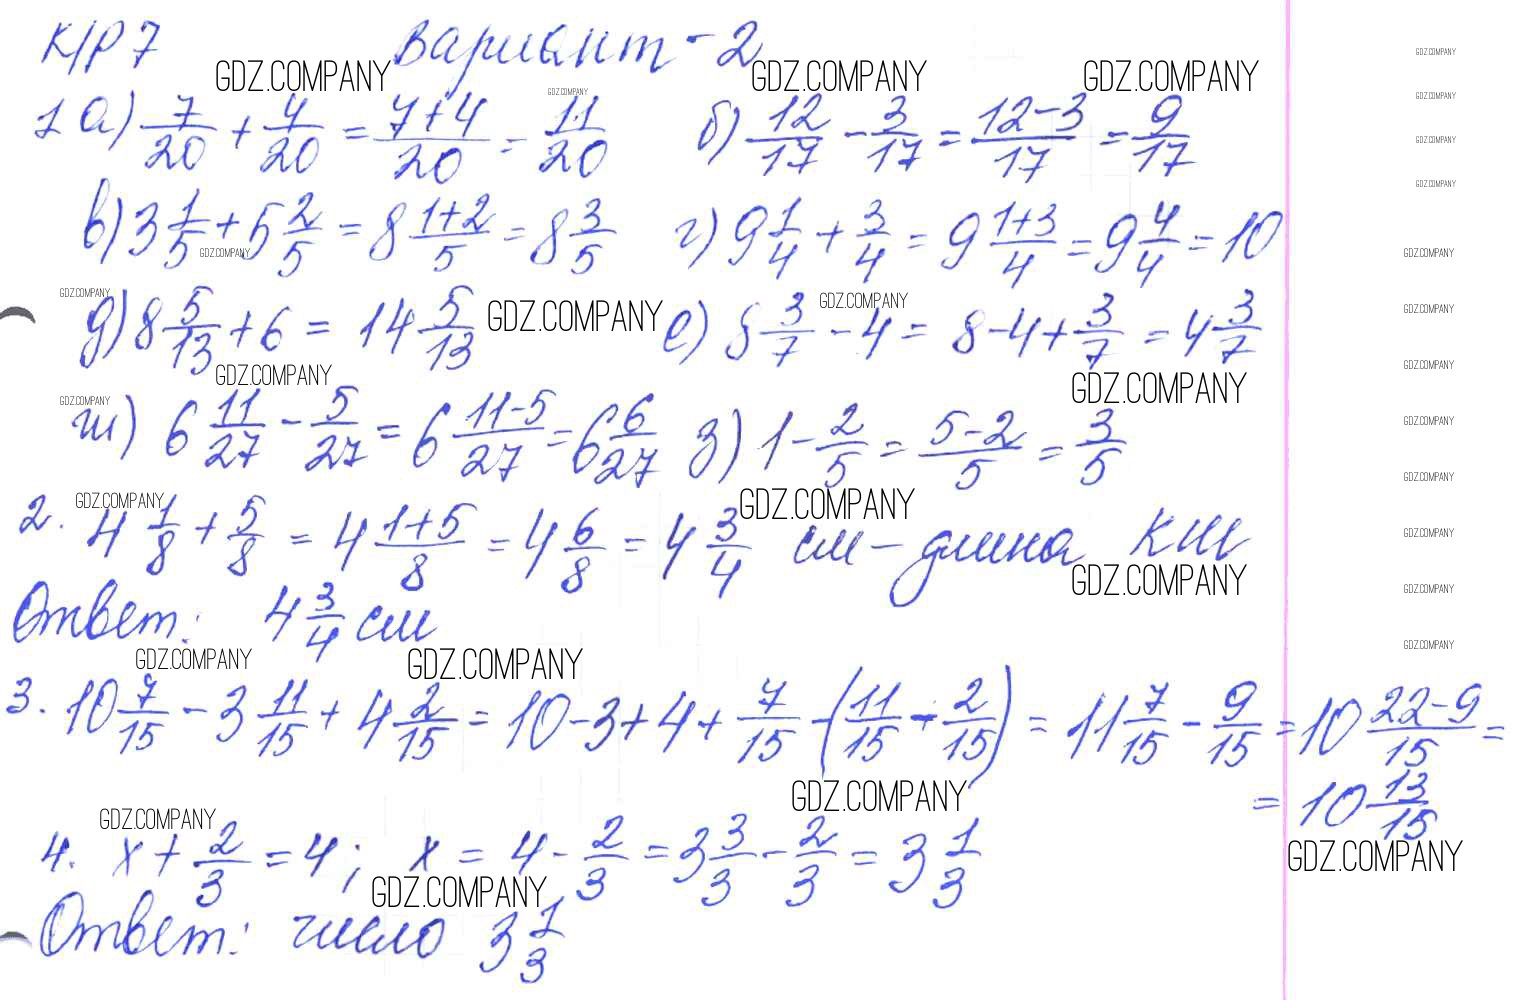 К/Р 7 Вариант - 2
GDZ.COMPANY GDZ.COMPANY GDZ.COMPANY GDZ.COMPANY GDZ.COMPANY
1 а) 7/20 + 4/20 = (7+4)/20 = 11/20 б) 12/17 - 3/17 = (12-3)/17 = 9/17
GDZ.COMPANY GDZ.COMPANY GDZ.COMPANY GDZ.COMPANY
в) 3 1/5 + 5 2/5 = 8 (1+2)/5 = 8 3/5 г) 9 1/4 + 3/4 = 9 (1+3)/4 = 9 4/4 = 10
GDZ.COMPANY GDZ.COMPANY
д) 8 5/13 + 6 = 14 5/13 е) 8 3/7 - 4 = 8 - 4 + 3/7 = 4 3/7
GDZ.COMPANY GDZ.COMPANY GDZ.COMPANY GDZ.COMPANY
GDZ.COMPANY GDZ.COMPANY GDZ.COMPANY
ж) 6 11/27 - 5/27 = 6 (11-5)/27 = 6 6/27 з) 1 - 2/5 = (5-2)/5 = 3/5
GDZ.COMPANY GDZ.COMPANY
GDZ.COMPANY GDZ.COMPANY GDZ.COMPANY
2. 4 1/8 + 5/8 = 4 (1+5)/8 = 4 6/8 = 4 3/4 см - длина КМ
GDZ.COMPANY GDZ.COMPANY
Ответ: 4 3/4 см
GDZ.COMPANY GDZ.COMPANY GDZ.COMPANY GDZ.COMPANY
3. 10 7/15 - 3 11/15 + 4 2/15 = 10 - 3 + 4 + 7/15 - (11/15 + 2/15) = 11 7/15 - 9/15 = 10 (22-9)/15 =
= 10 13/15
GDZ.COMPANY GDZ.COMPANY
4. x + 2/3 = 4; x = 4 - 2/3 = 3 3/3 - 2/3 = 3 1/3
GDZ.COMPANY GDZ.COMPANY
Ответ: число 3 1/3